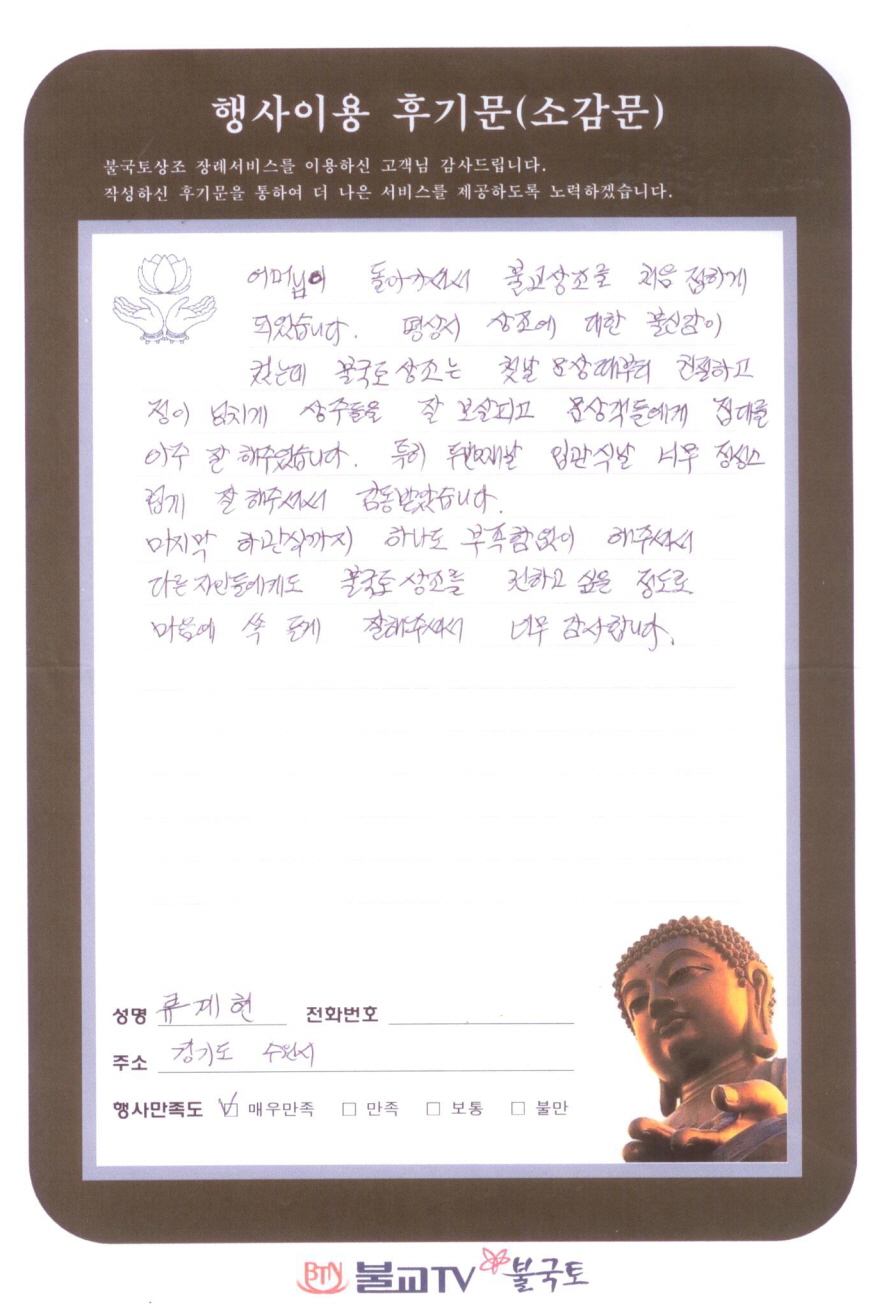 행사이용 후기문(소감문)
불국토상조 장례서비스를 이용하신 고객님 감사드립니다.
작성하신 후기문을 통하여 더 나은 서비스를 제공하도록 노력하겠습니다.
어머님이 돌아가셔서 불교상조를 처음 접하게
되었습니다. 평상시 상조에 대한 불신감이
컸는데 불국토 상조는 첫날 문상때부터 친절하고
정이 넘치게 상주들을 잘 보살피고 문상객들에게 접대를
아주 잘 해주셨습니다. 특히 두번째날 입관식날 너무 정성스
럽게 잘 해주셔서 감동받았습니다.
마지막 하관식까지 하나도 부족함없이 해주셔서
다른 지인들에게도 불국토 상조를 전하고 싶을 정도로
마음에 쏙 들게 잘해주셔서 너무 감사합니다.
성명 류제현 전화번호
주소 경기도 수원시
행사만족도 ☑ 매우만족 □ 만족 □ 보통 □ 불만
BTN 불교TV 불국토